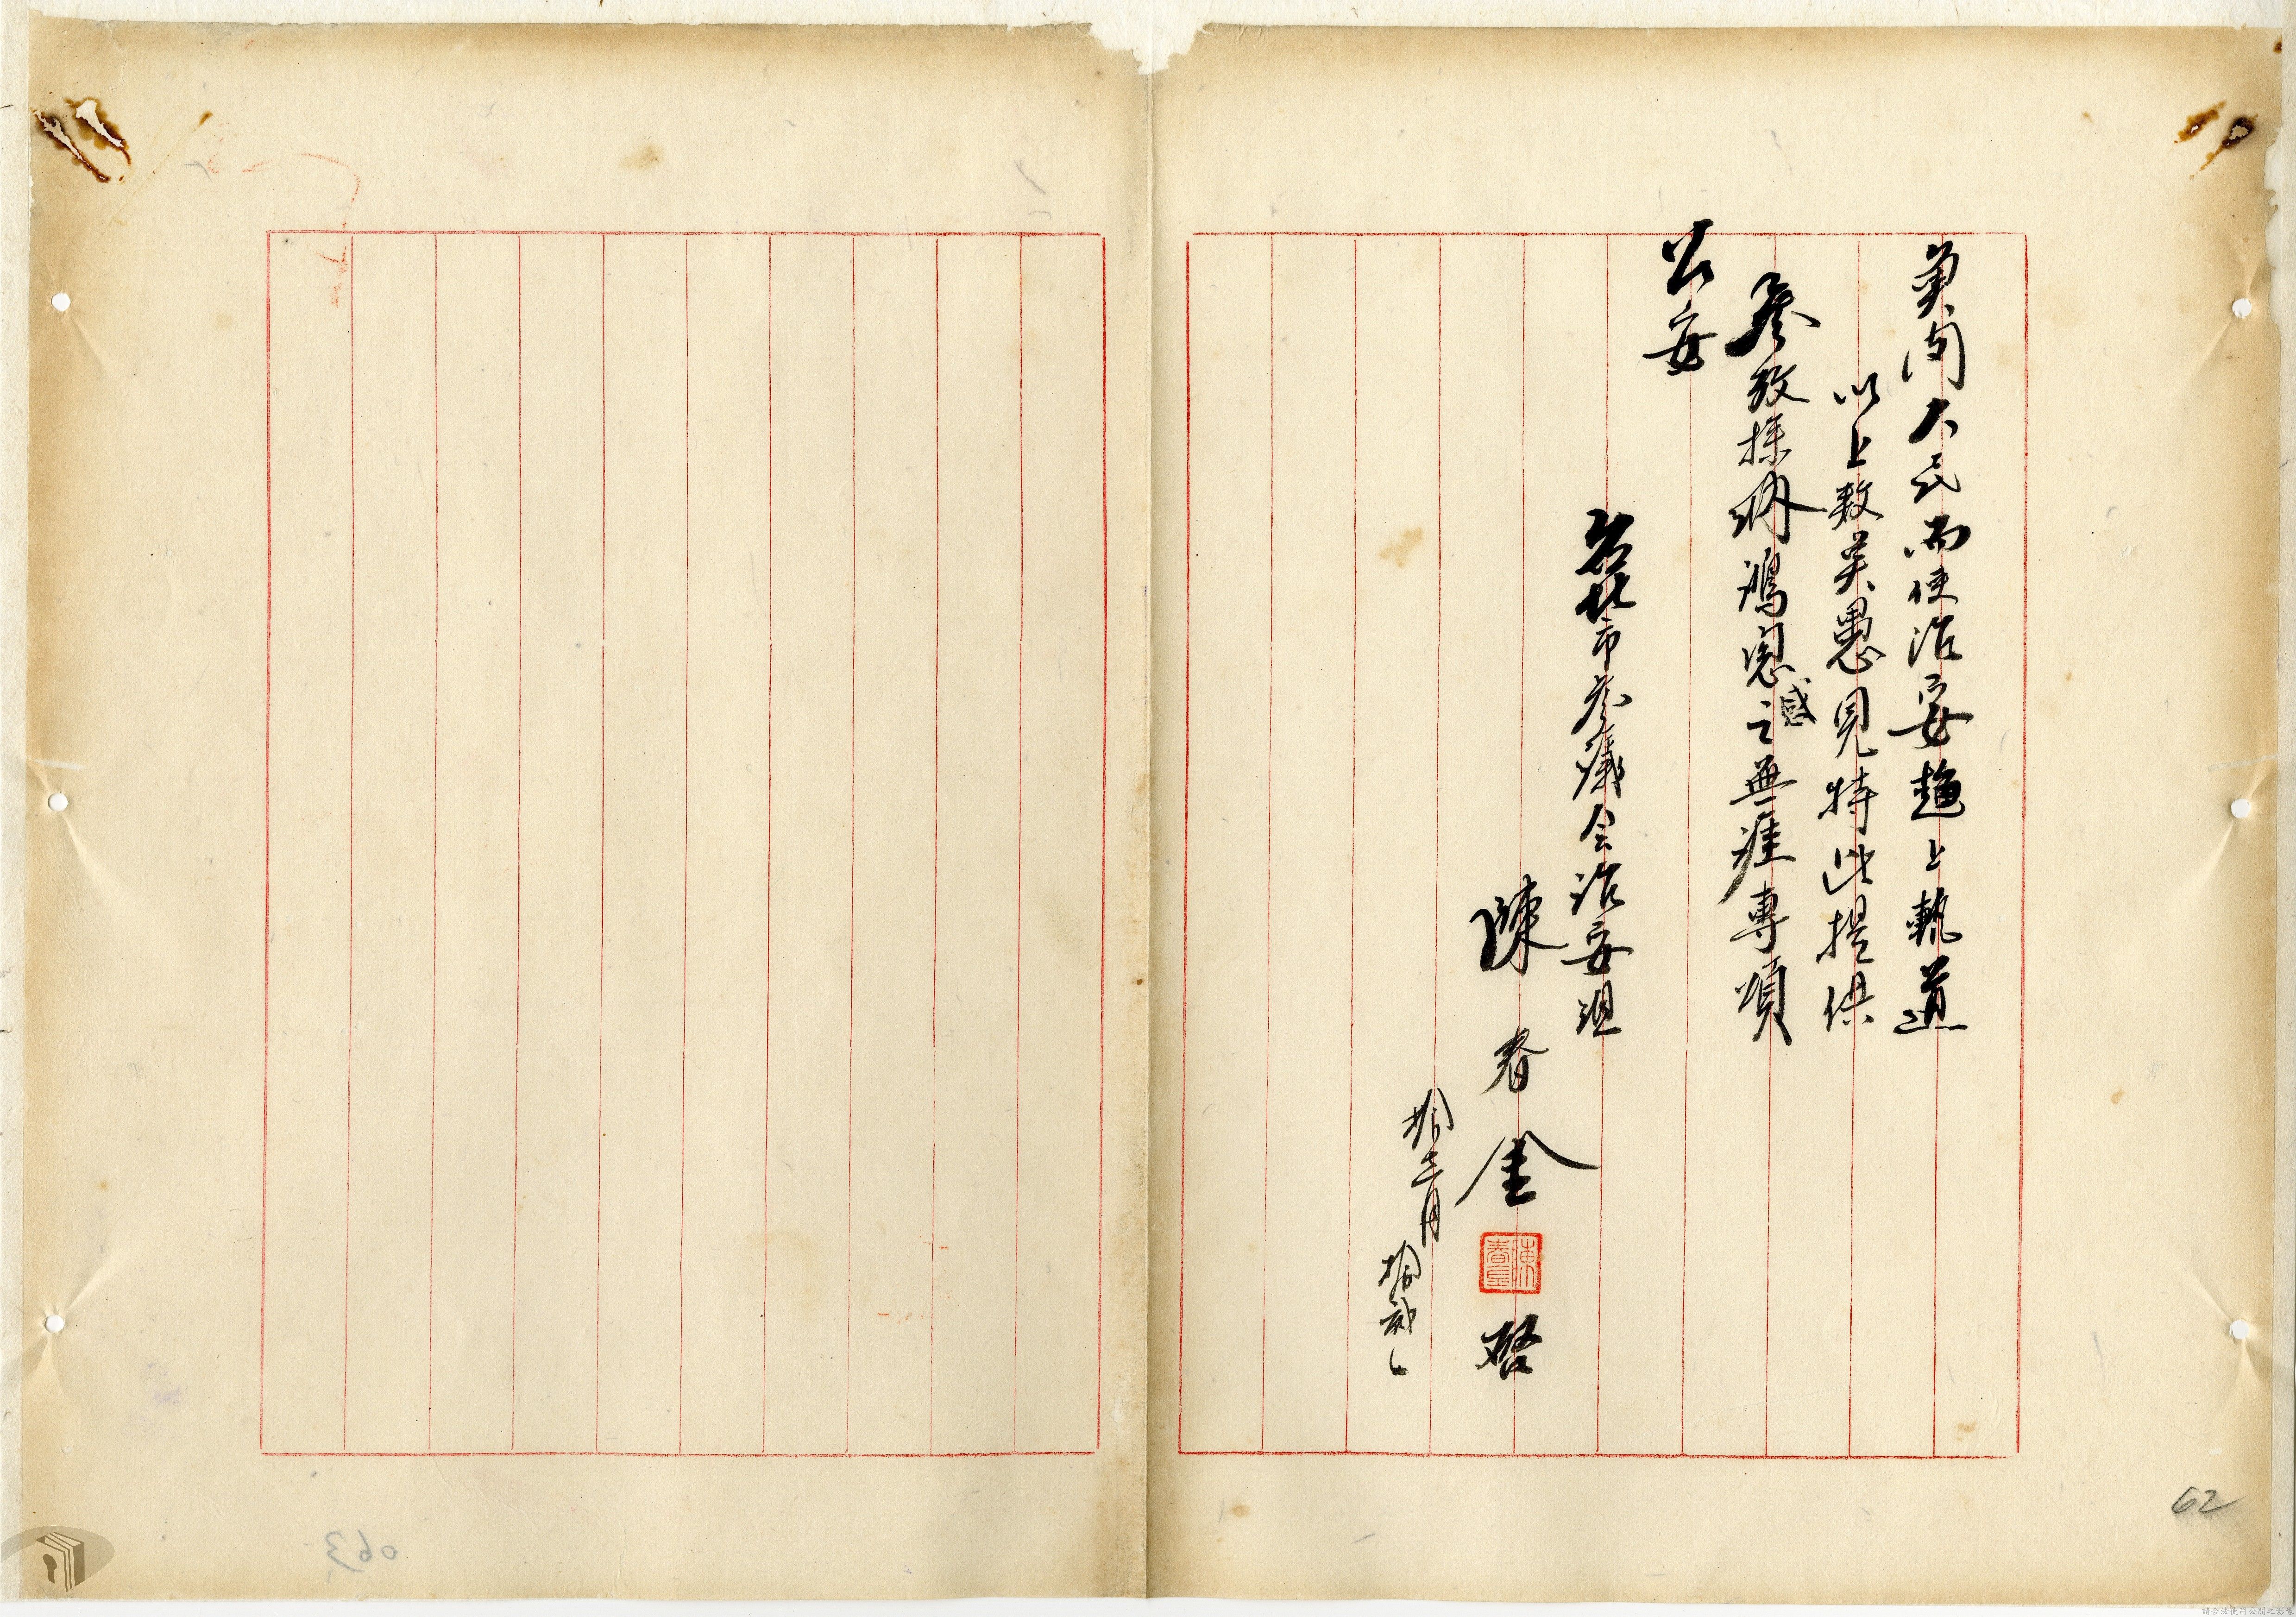 莫問大武而使治安趨上軌道
以上數英愚見特此提供
參攷採納鴻恩感之無涯專頌
公安
台北市參議会治安組
陳春金
啓
拾二月
拾弍
62
063